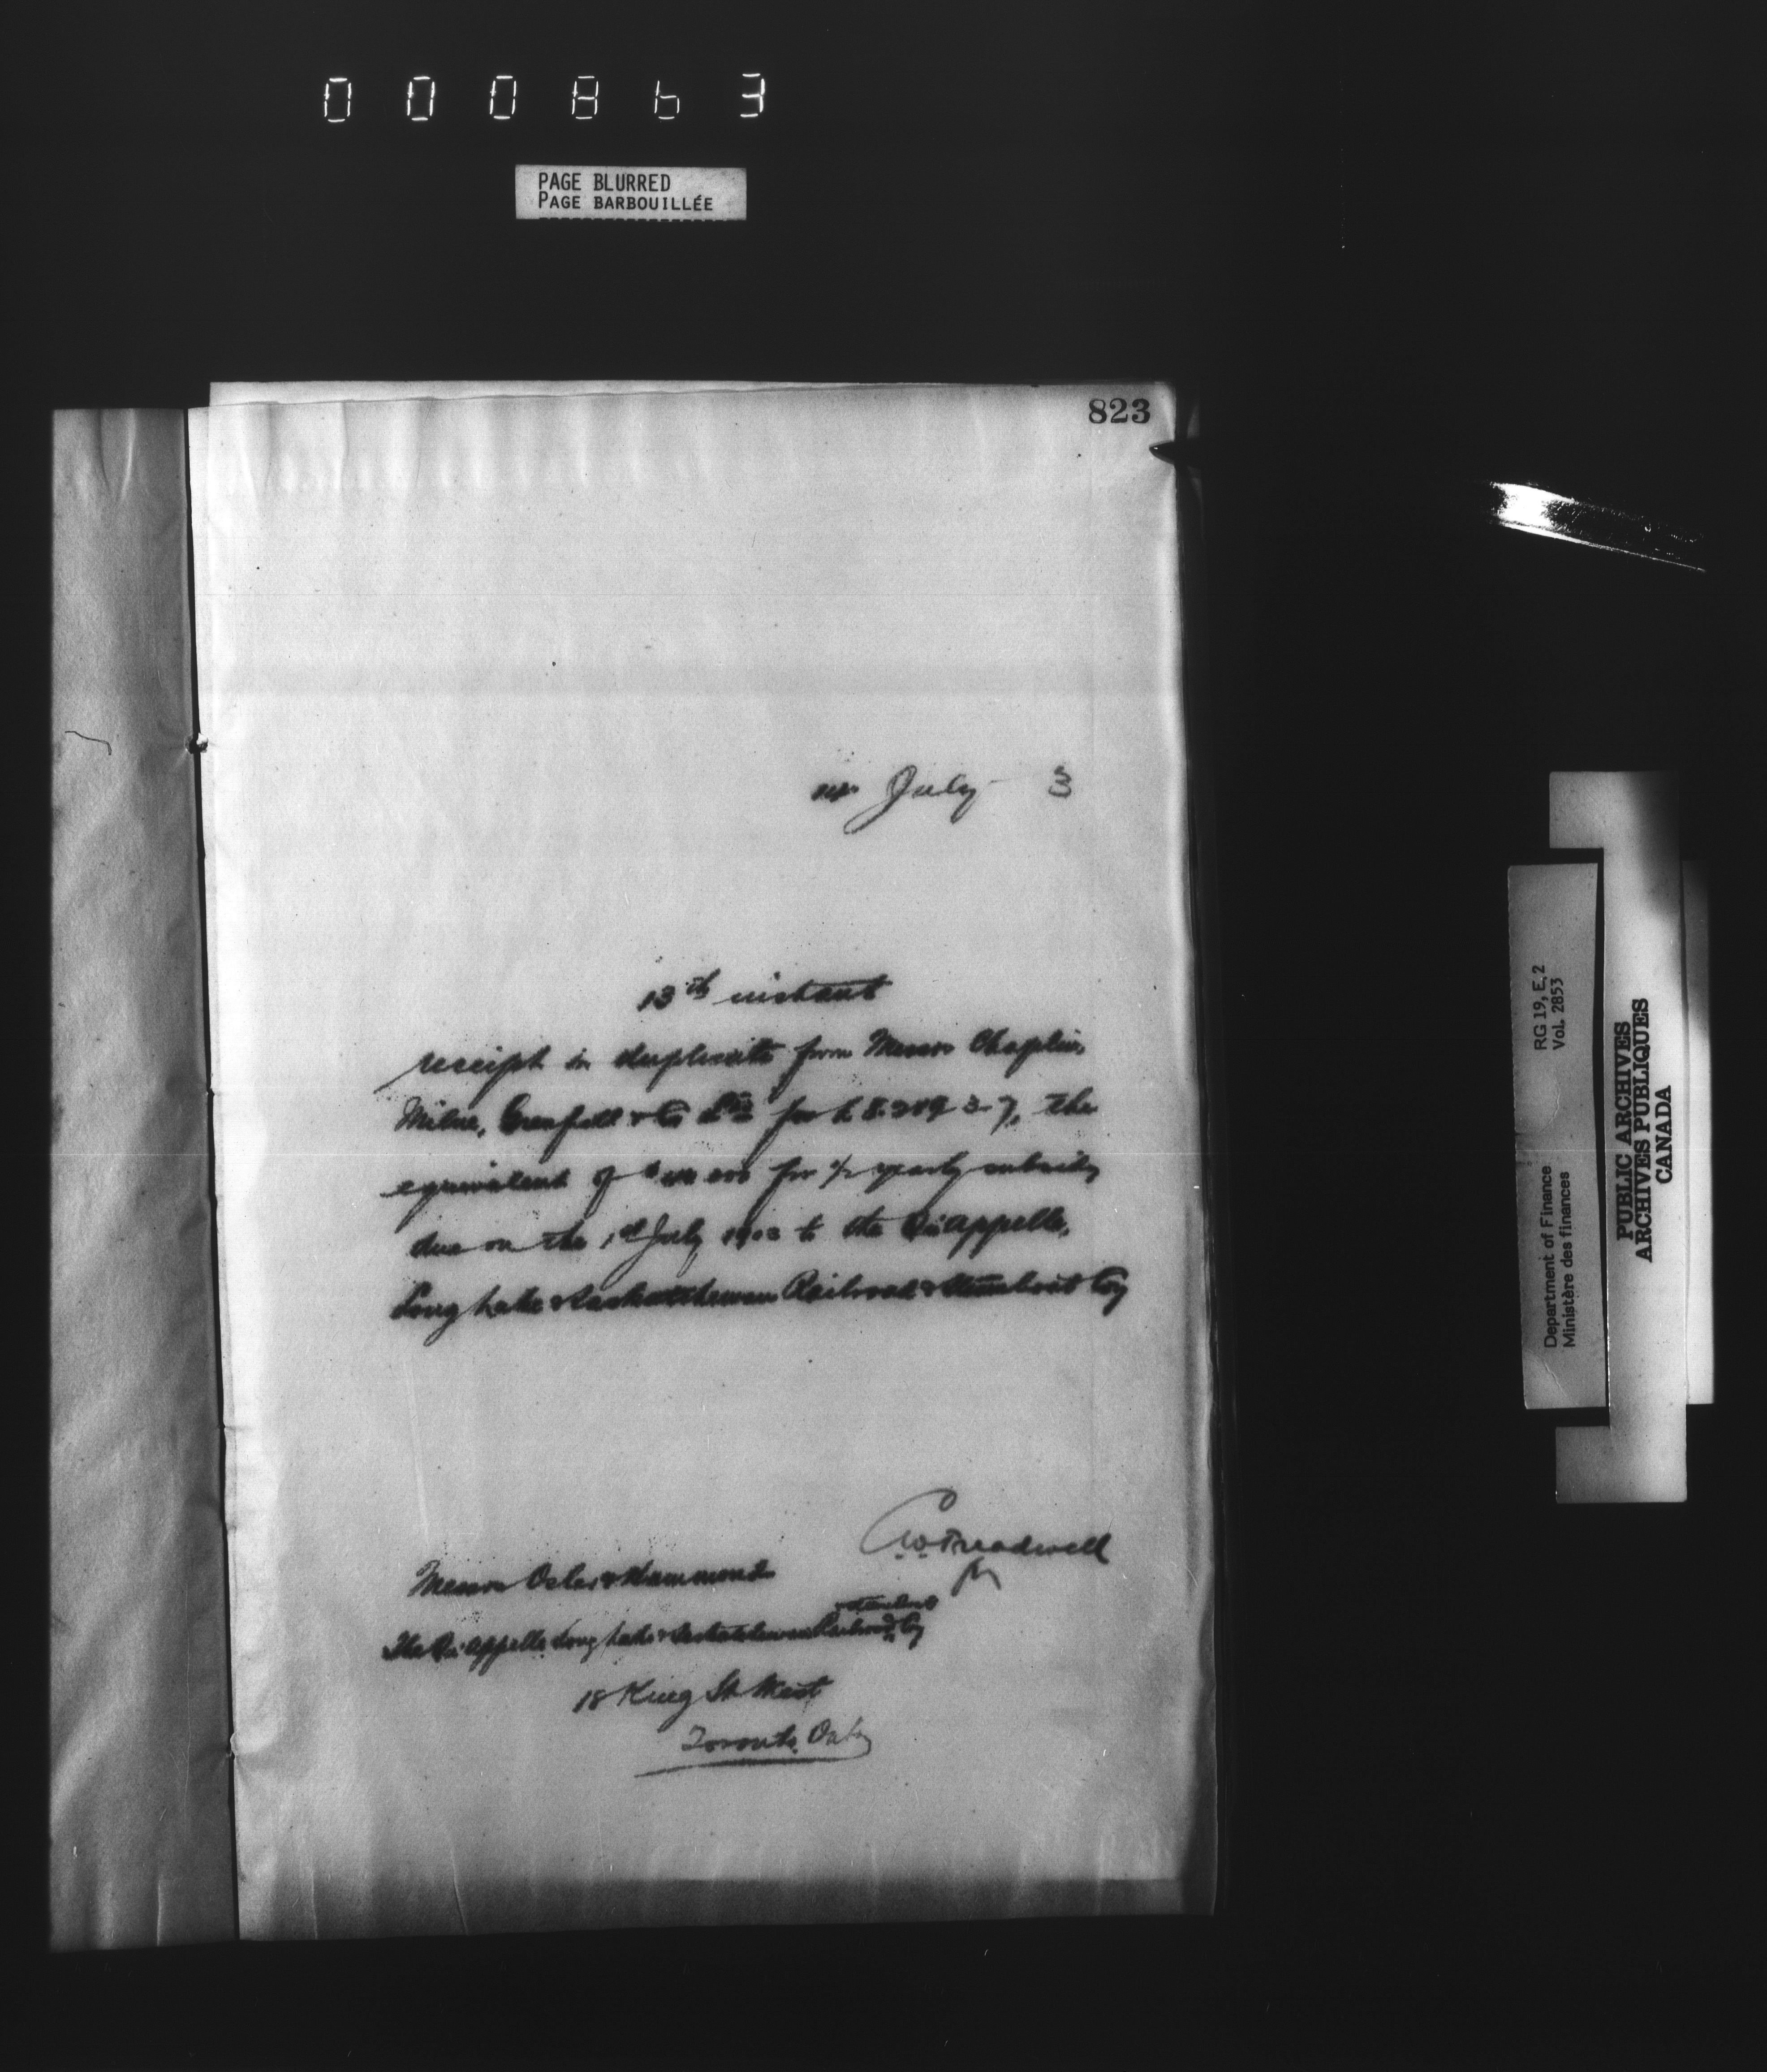 000863
PAGE BLURRED
PAGE BARBOUILLÉE
823
July 3
13th instant
receipt in duplicate from Messrs Chaplin,
Milne, Grenfell & Co Ltd for £ 8.219 3-7, the
equivalent of $ for 1/2 yearly subsidy
due on the 1st July 1903 to the Qu'appelle,
Long Lake & Saskatchewan Railroad & Steamboat Coy
C.W. Treadwell
Messrs Osler & Hammond
& Steamboat
The Qu'Appelle Long Lake & Saskatchewan Railroad Coy
18 King St West
Toronto, Ont
RG 19, E, 2
Vol. 2853
Department of Finance
Ministère des finances
PUBLIC ARCHIVES
ARCHIVES PUBLIQUES
CANADA